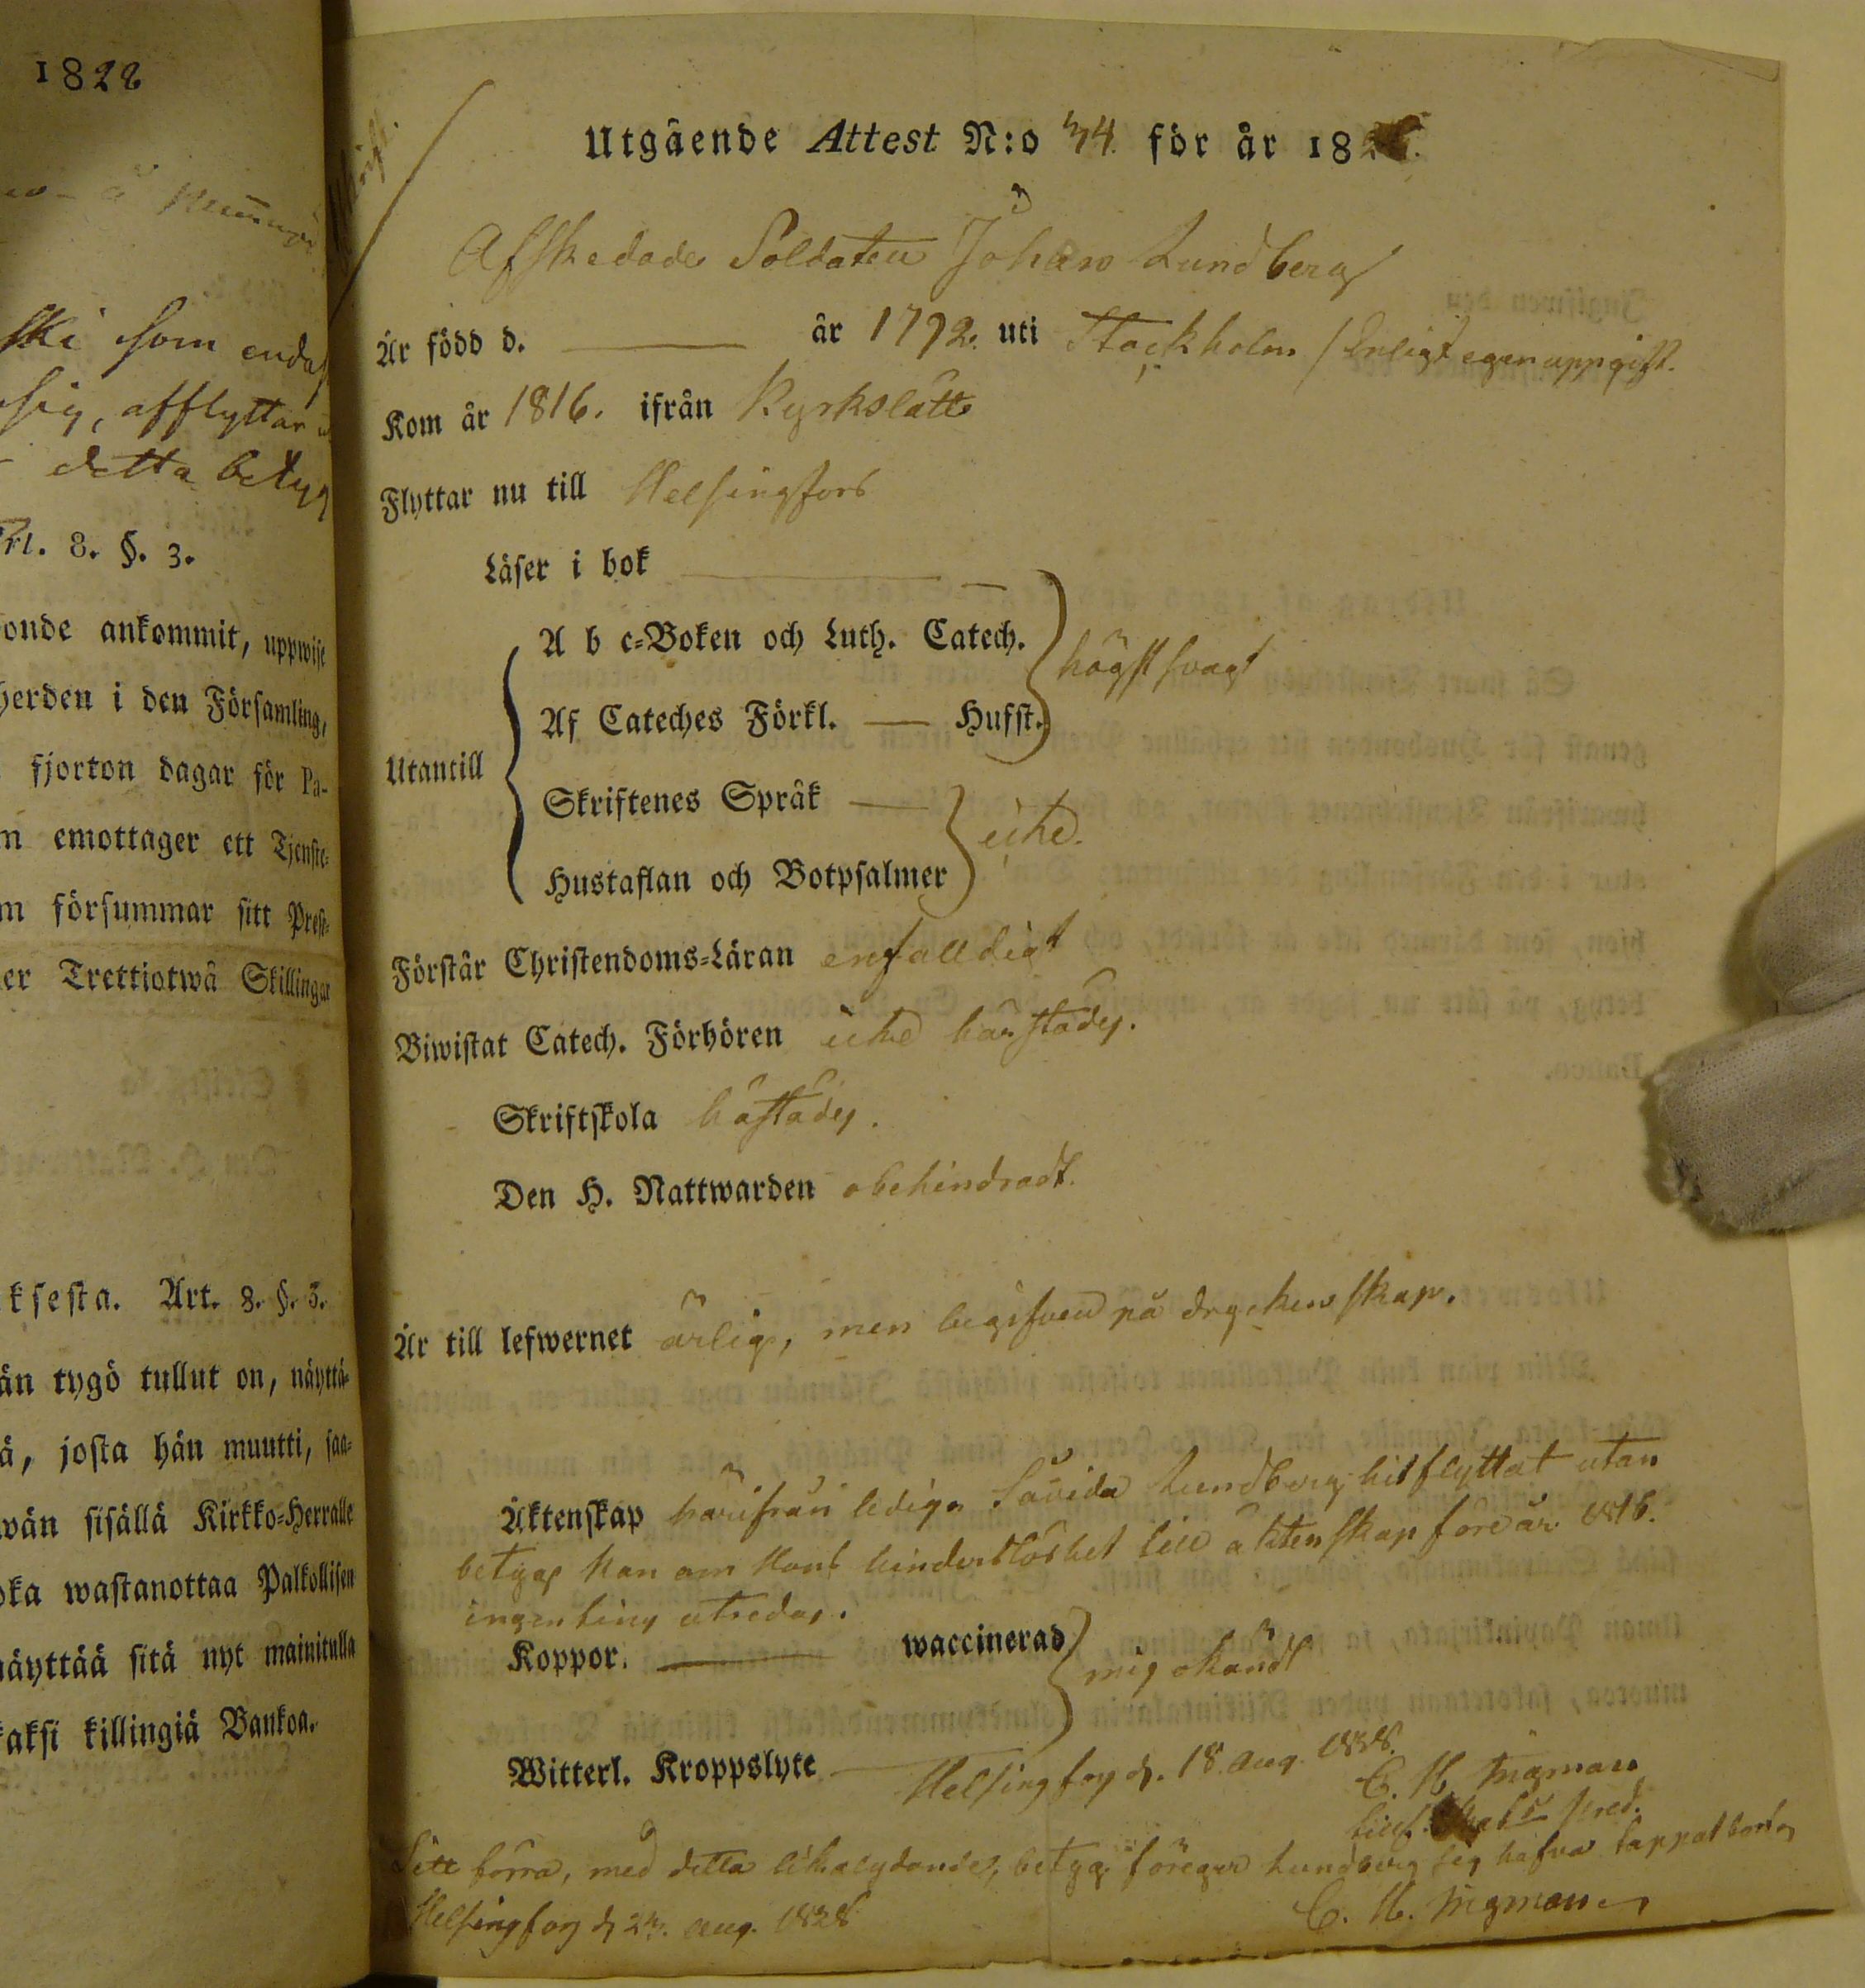 1828
ski som endast
sig, afflyttar
detta betyg
Art. 8. §. 3.
onde ankommit, uppwise
herden i den Församling,
fjorton dagar för Pa-
m emottager ett Tjenste-
m försummar sitt Prest-
er Trettiotwå Skillingar
ksesta. Art. 8. §. 3.
än tygö tullut on, näyttä-
ä, josta hän muutti, saa-
wän sisällä Kirkko-Herralle
oka wastanottaa Palkollisen
näyttää sitä nyt mainitulla
kaksi killingiä Bankoa.
Utgående Attest N:o 74. för år 182
Afskedade Soldaten Johan Lundberg
Är född d. — år 1792. uti Stockholm / Enligt egen uppgift.
Kom år 1816. ifrån Kyrkslätt
Flyttar nu till Helsingfors
Läser i bok —
A b c-Boken och Luth. Catech.
högst svagt
Af Cateches Förkl. — Husst.
Utantill
Skriftenes Språk —
icke.
Hustaflan och Botpsalmer
Förstår Christendoms-Läran enfalldigt
Biwistat Catech. Förhören icke härstädes.
Skriftskola härstädes.
Den H. Nattwarden obehindradt.
Är till lefwernet ärlig, men begifven på dryckenskap.
Äktenskap härifrån ledig. Såvida Lundberg hitflyttat utan
betyg kan om Hans hinderslöshet till äktenskap före år 1816.
ingenting utredas.
Koppor. — waccinerad
mig okändt
Witterl. Kroppslyte — Helsingfors d. 18. Aug. 1828.
C. H. Ingman
Sitt förra, med detta lika lydande, betyg föreger Lundberg sig hafva tappat bort.
Helsingfors d. Aug. 1828
C. H. Ingman